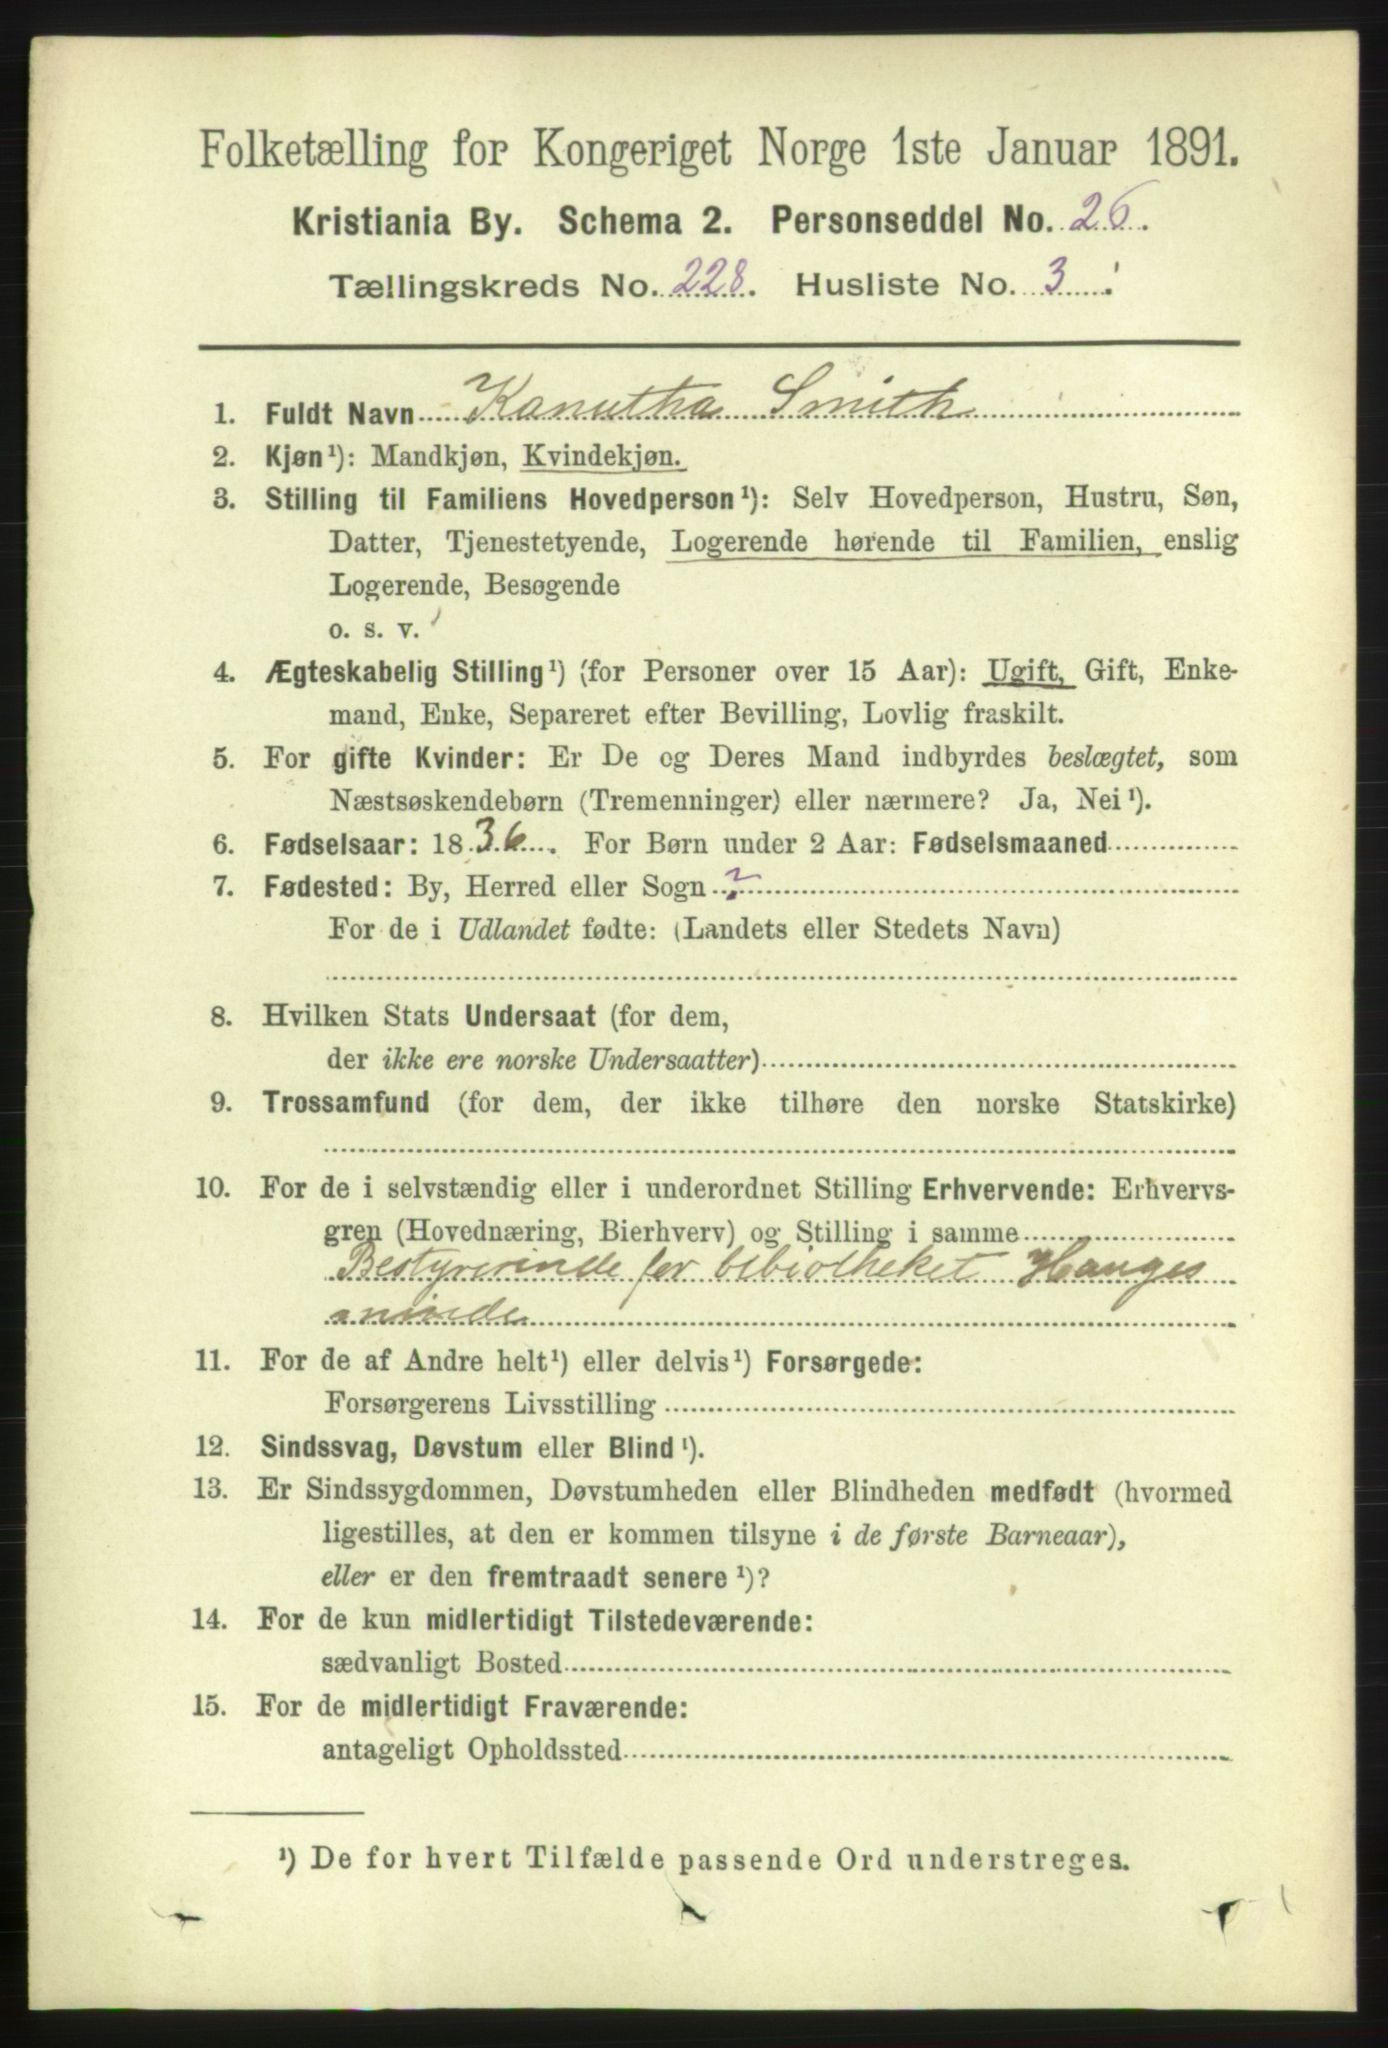 Folketælling for Kongeriget Norge 1ste Januar 1891.
Kristiania By. Schema 2. Personseddel No. 26.
Tællingskreds No. 228. Husliste No. 3.
1. Fuldt Navn Kanutha Smith
2. Kjøn¹): Mandkjøn, Kvindekjøn.
3. Stilling til Familiens Hovedperson¹): Selv Hovedperson, Hustru, Søn,
Datter, Tjenestetyende, Logerende hørende til Familien, enslig
Logerende, Besøgende
o. s. v.
4. Ægteskabelig Stilling¹) (for Personer over 15 Aar): Ugift, Gift, Enke-
mand, Enke, Separeret efter Bevilling, Lovlig fraskilt.
5. For gifte Kvinder: Er De og Deres Mand indbyrdes beslægtet, som
Næstsøskendebørn (Tremenninger) eller nærmere? Ja, Nei¹).
6. Fødselsaar: 1836. For Børn under 2 Aar: Fødselsmaaned
7. Fødested: By, Herred eller Sogn ?
For de i Udlandet fødte: (Landets eller Stedets Navn)
8. Hvilken Stats Undersaat (for dem,
der ikke ere norske Undersaatter)
9. Trossamfund (for dem, der ikke tilhøre den norske Statskirke)
10. For de i selvstændig eller i underordnet Stilling Erhvervende: Erhvervs-
gren (Hovednæring, Bierhverv) og Stilling i samme
Bestyrerinde for bibliotheket Hauges
minde
11. For de af Andre helt¹) eller delvis¹) Forsørgede:
Forsørgerens Livsstilling
12. Sindssvag, Døvstum eller Blind¹).
13. Er Sindssygdommen, Døvstumheden eller Blindheden medfødt (hvormed
ligestilles, at den er kommen tilsyne i de første Barneaar),
eller er den fremtraadt senere¹)?
14. For de kun midlertidigt Tilstedeværende:
sædvanligt Bosted
15. For de midlertidigt Fraværende:
antageligt Opholdssted
¹) De for hvert Tilfælde passende Ord understreges.